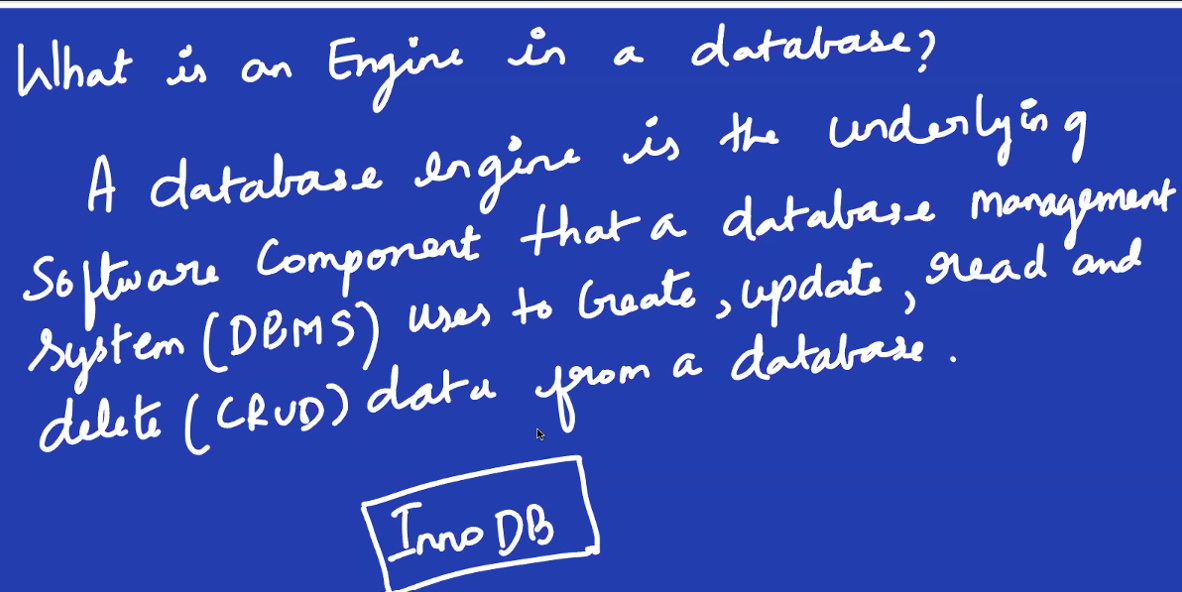 What is an Engine in a database?
A database engine is the underlying
Software Component that a database management
System (DBMS) uses to Create, update, read and
delete (CRUD) data from a database.
Inno DB